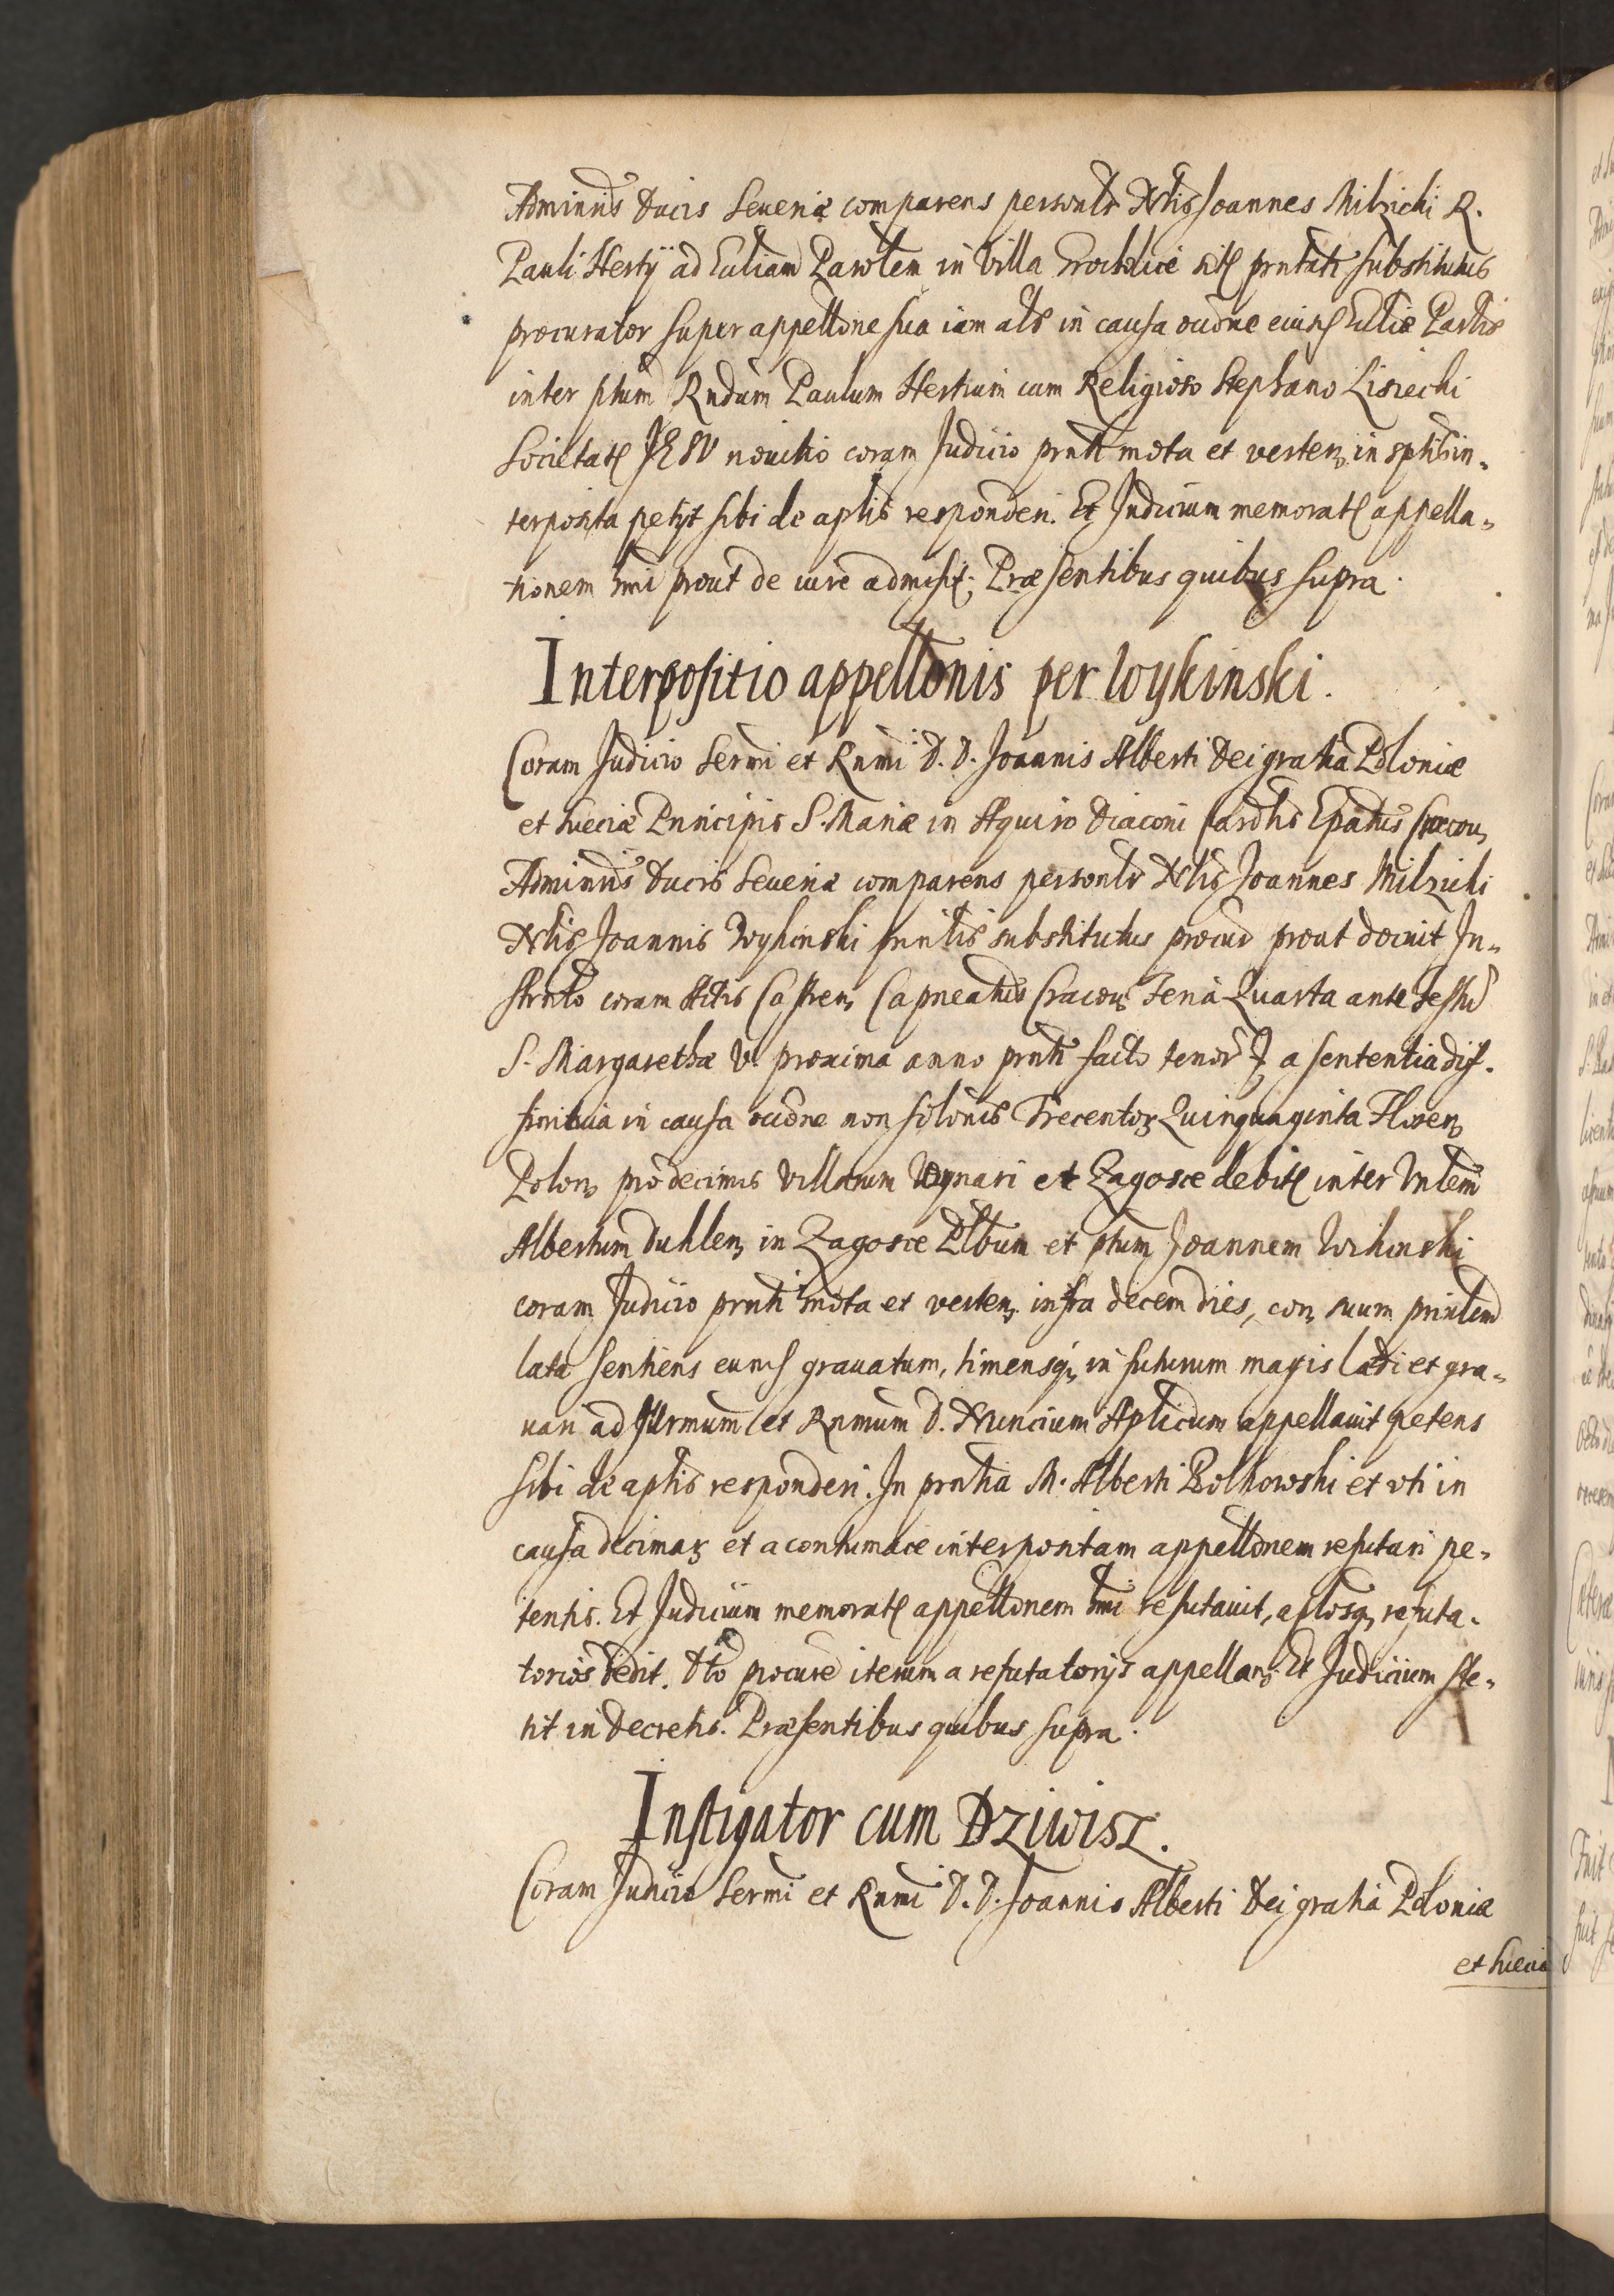 Adminris Ducis Seueriæ comparens personlr Nlis Joannes Milzicki R.
Pauli Hertij ad Eccliam Parolem in Villa sitæ prntati substitutus
procurator super appellone sua iam als in causa occõne eiusd Eccliæ Parlis
inter ptum Rndum Paulum Hertium cum Religioso Stephano Lisiecki
Societatis JESV nouitio coram Judicio prnti mota et verten, in sptis in-
terposita petijt sibi de aplis responderi. Et Judicium memoratæ appella-
tionem hmoi prout de iure admisit. Præsentibus quibus supra.
Interpositio appellonis per Woykinski.
Coram Judicio Sermi et Rnmi D. D. Joannis Alberti Dei gratia Poloniæ
et Sueciæ Principis S. Mariæ in Aquiro Diaconi Cardlis Epatus Cracou,
Adminris Ducis Seueriæ comparens personlr Nlis Joannes Milzicki
Nlis Joannis Woykinski substitutus procur prout docuit In-
strnto coram Actis Castren, Capneatus Cracou, Feria Quarta ante Festu
S. Margarethæ V. proxima anno prnti facto a sententia dif-
finitiua in causa occõne non solonis Trecentor, Quinquaginta Floren,
Polon, pro decimis Villarum Wynari et Zagosce debitæ inter Vnlem
Albertum Duklen, in Zagosce Plbum et ptum Joannem Woikinski
coram Judicio prnti mota et verten, infra decem dies, con, suum prinlem
lata sentiens eund grauatum, timensq, in futurum magis lædi et gra-
uari ad Illrmum et Rnmum D. Nuncium Aplicum appellauit petens
sibi de aplis responderi. In prntia M. Alberti Bolkowski et vti in
causa decimar, et a contumace interpositam appellonem refutari pe-
tentis. Et Judicium memoratæ appellonem hmoi refutauit, aplosq, refuta-
torios dedit. Dto procure iterum a refutatorijs appellan, Et Judicium ste-
tit in decretis. Præsentibus quibus supra.
Instigator cum Dziwisz.
Coram Judicio Sermi et Rnmi D. D. Joannis Alberti Dei gratia Poloniæ
et Sueciæ